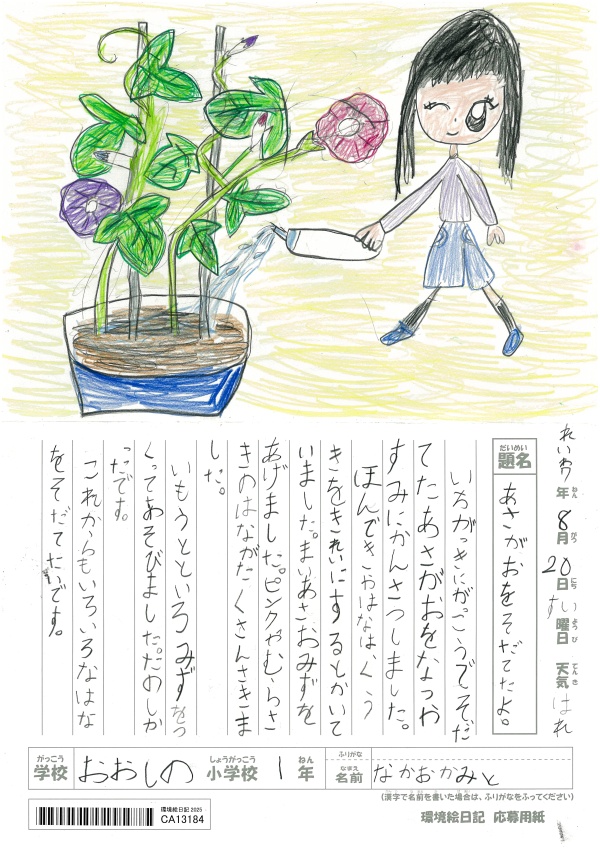 れいわ7年 8月 20日 すい曜日 天気 はれ
ねん がつ にち ようび てんき
だいめい
題名 あさがおをそだてたよ。
いちがっきにがっこうでそだ
てたあさがおをなつや
すみにかんさつしました。
ほんできやはなは、くう
きをきれいにするとかいて
いました。まいあさおみずを
あげました。ピンクやむらさ
きのはながたくさんさきま
した。
いもうとといろみずをつ
くってあそびました。たのしか
ったです。
これからもいろいろなはな
をそだてたいです。
がっこう しょうがっこう ねん ふりがな
学校 おおしの 小学校 1年 名前 なかおかみと
なまえ
(漢字で名前を書いた場合は、ふりがなをふってください)
環境絵日記 2025
CA13184
環境絵日記 応募用紙